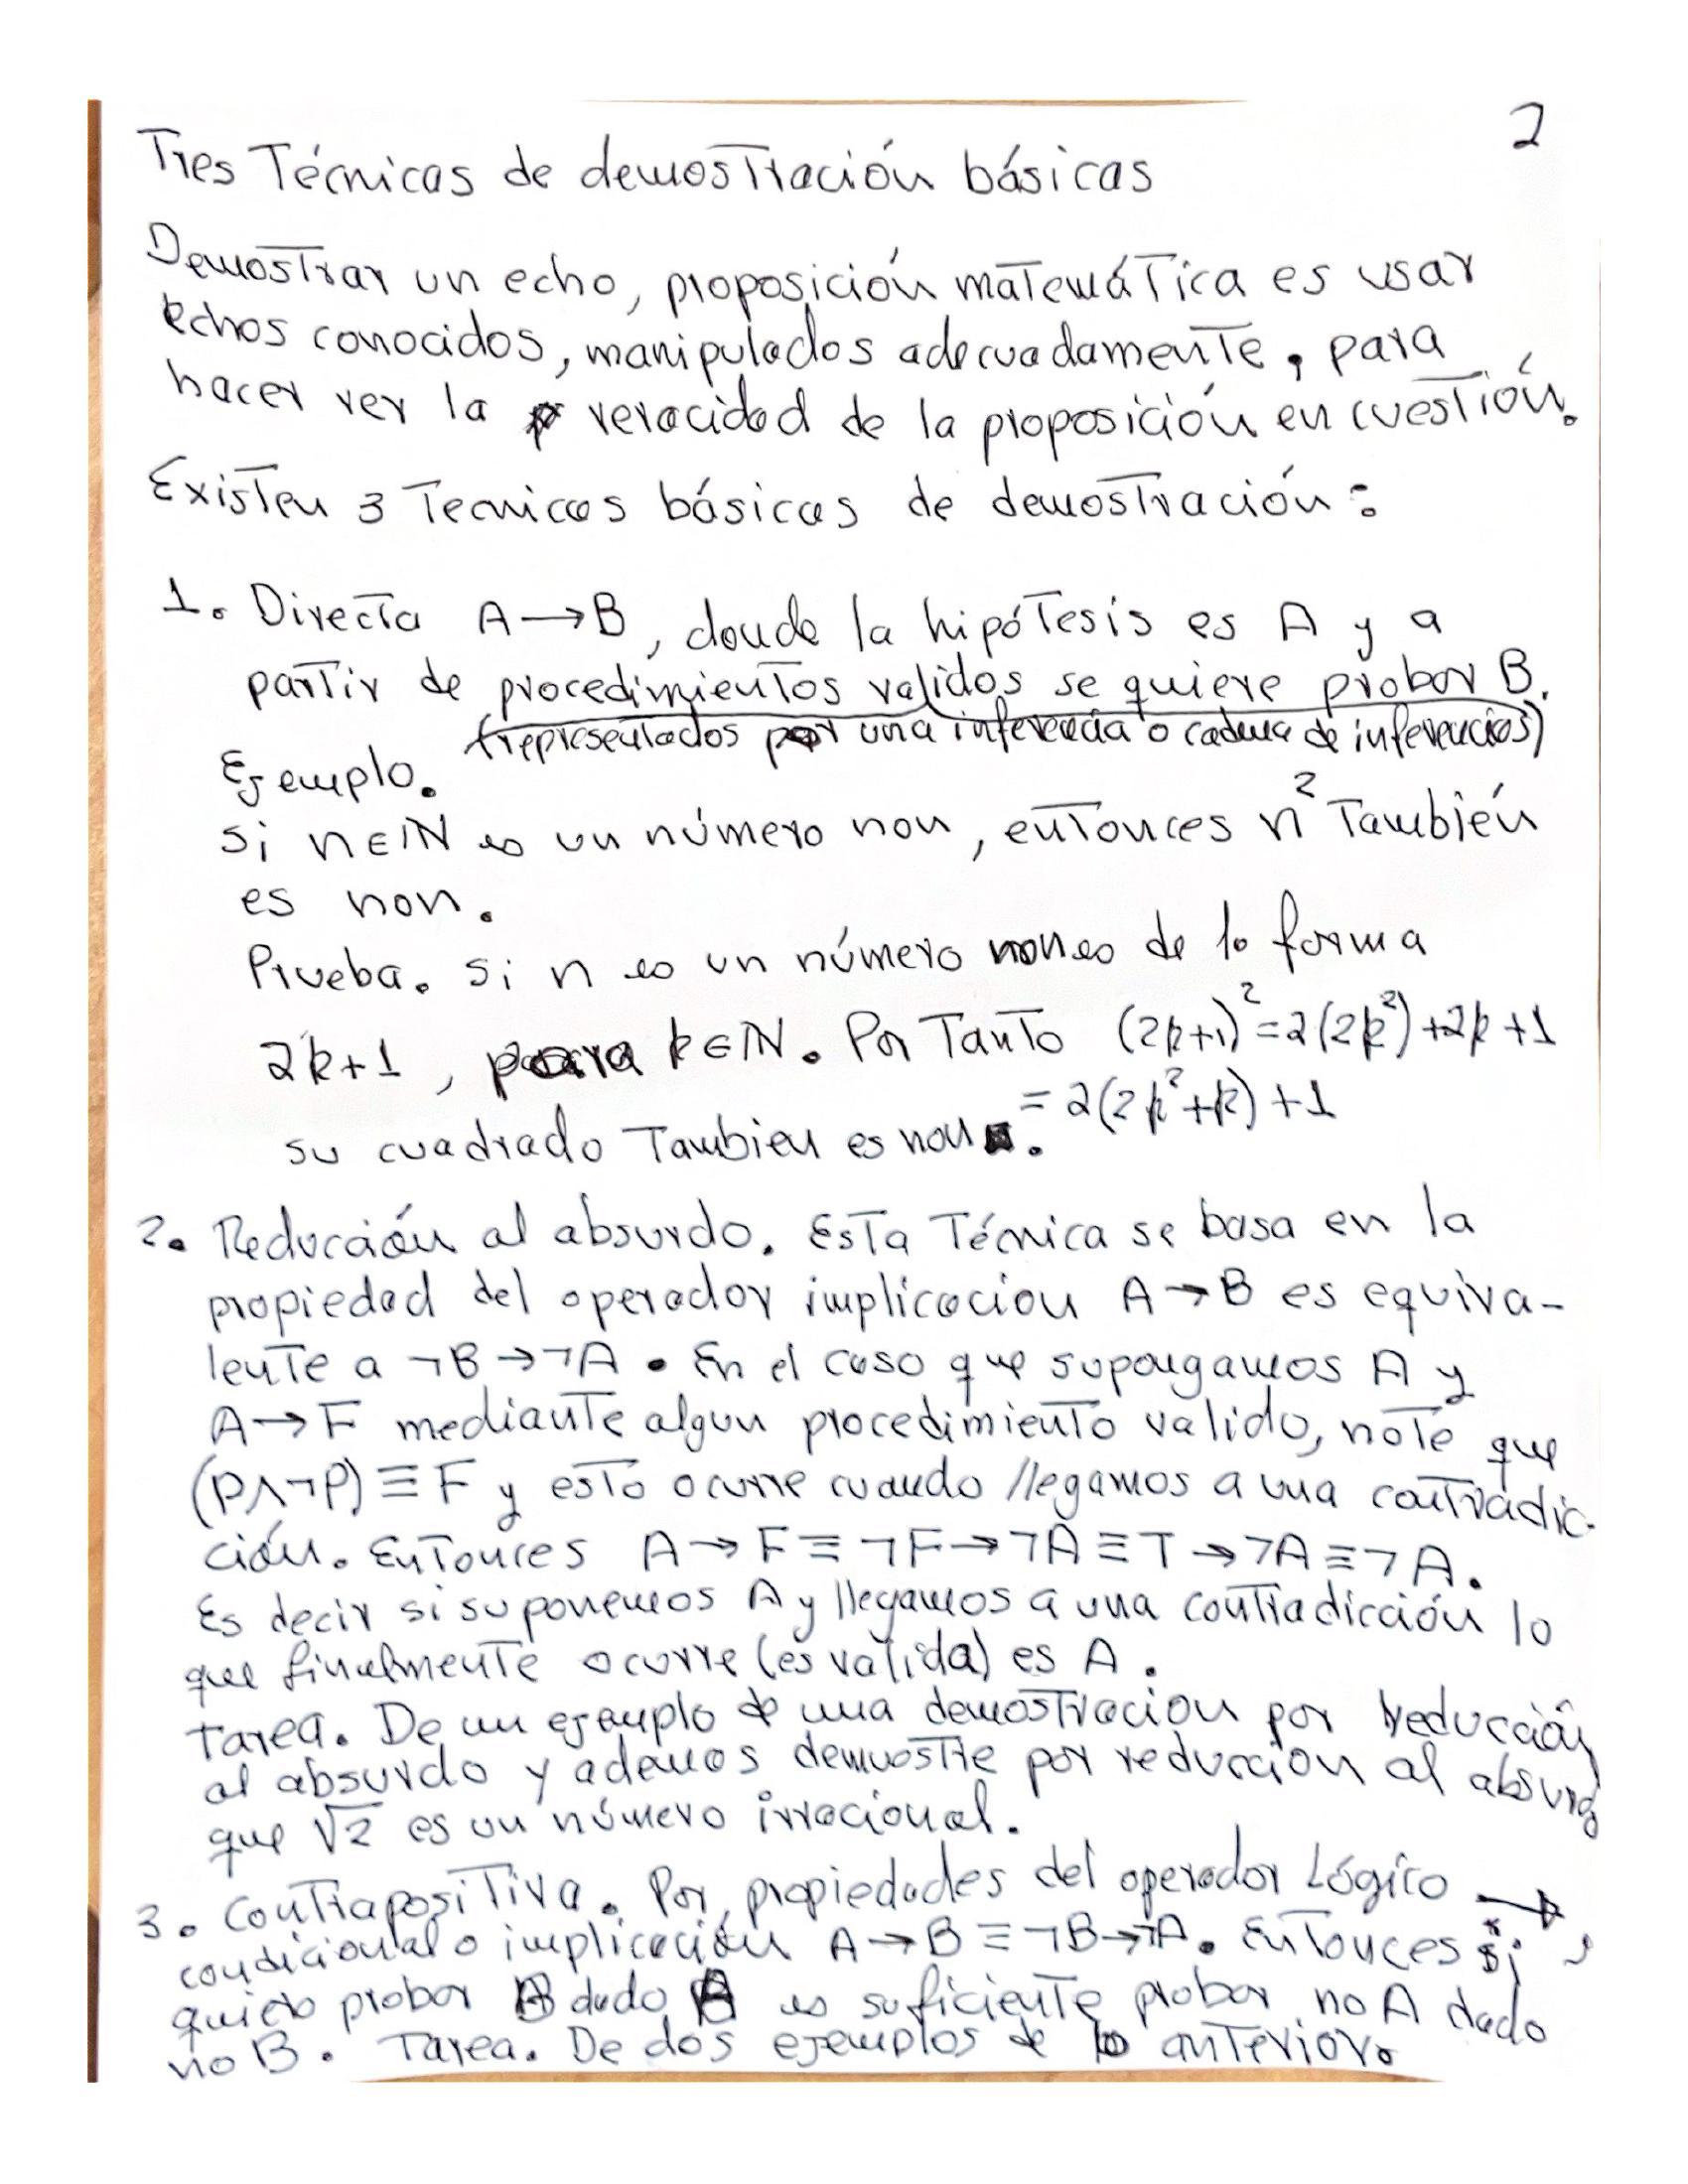 2
Tres Técnicas de demostración básicas
Demostrar un echo, proposición matemática es usar
echos conocidos, manipulados adecuadamente, para
hacer ver la veracidad de la proposición en cuestión.
Existen 3 Tecnicas básicas de demostración:
1. Directa A → B, donde la hipótesis es A y a
partir de procedimientos validos se quiere probar B.
(representados por una inferencia o cadena de inferencias)
Ejemplo.
Si n∈ℕ es un número non, entonces n² También
es non.
Prueba. Si n es un número non es de la forma
2k+1, para k∈ℕ. Por Tanto (2k+1)²=2(2k²)+2k+1
=2(2k²+k)+1
su cuadrado Tambien es non ■.
2. Reducción al absurdo. Esta Técnica se basa en la
propiedad del operador implicacion A → B es equiva-
lente a ¬B → ¬A. En el caso que supongamos A y
A → F mediante algun procedimiento valido, note que
(P∧¬P) ≡ F y esto ocurre cuando llegamos a una contradic-
ción. Entonces A → F ≡ ¬F → ¬A ≡ T → ¬A ≡ ¬A.
Es decir si suponemos A y llegamos a una contradicción lo
que finalmente ocurre (es valida) es A.
Tarea. De un ejemplo de una demostracion por reducción
al absurdo y ademas demuestre por reduccion al absurd
que √2 es un número irracional.
3. Contrapositiva. Por propiedades del operador Lógico →,
condicional o implicación A → B ≡ ¬B → ¬A. Entonces si
quiero probar B dado A es suficiente probar no A dado
no B. Tarea. De dos ejemplos de lo anterior.